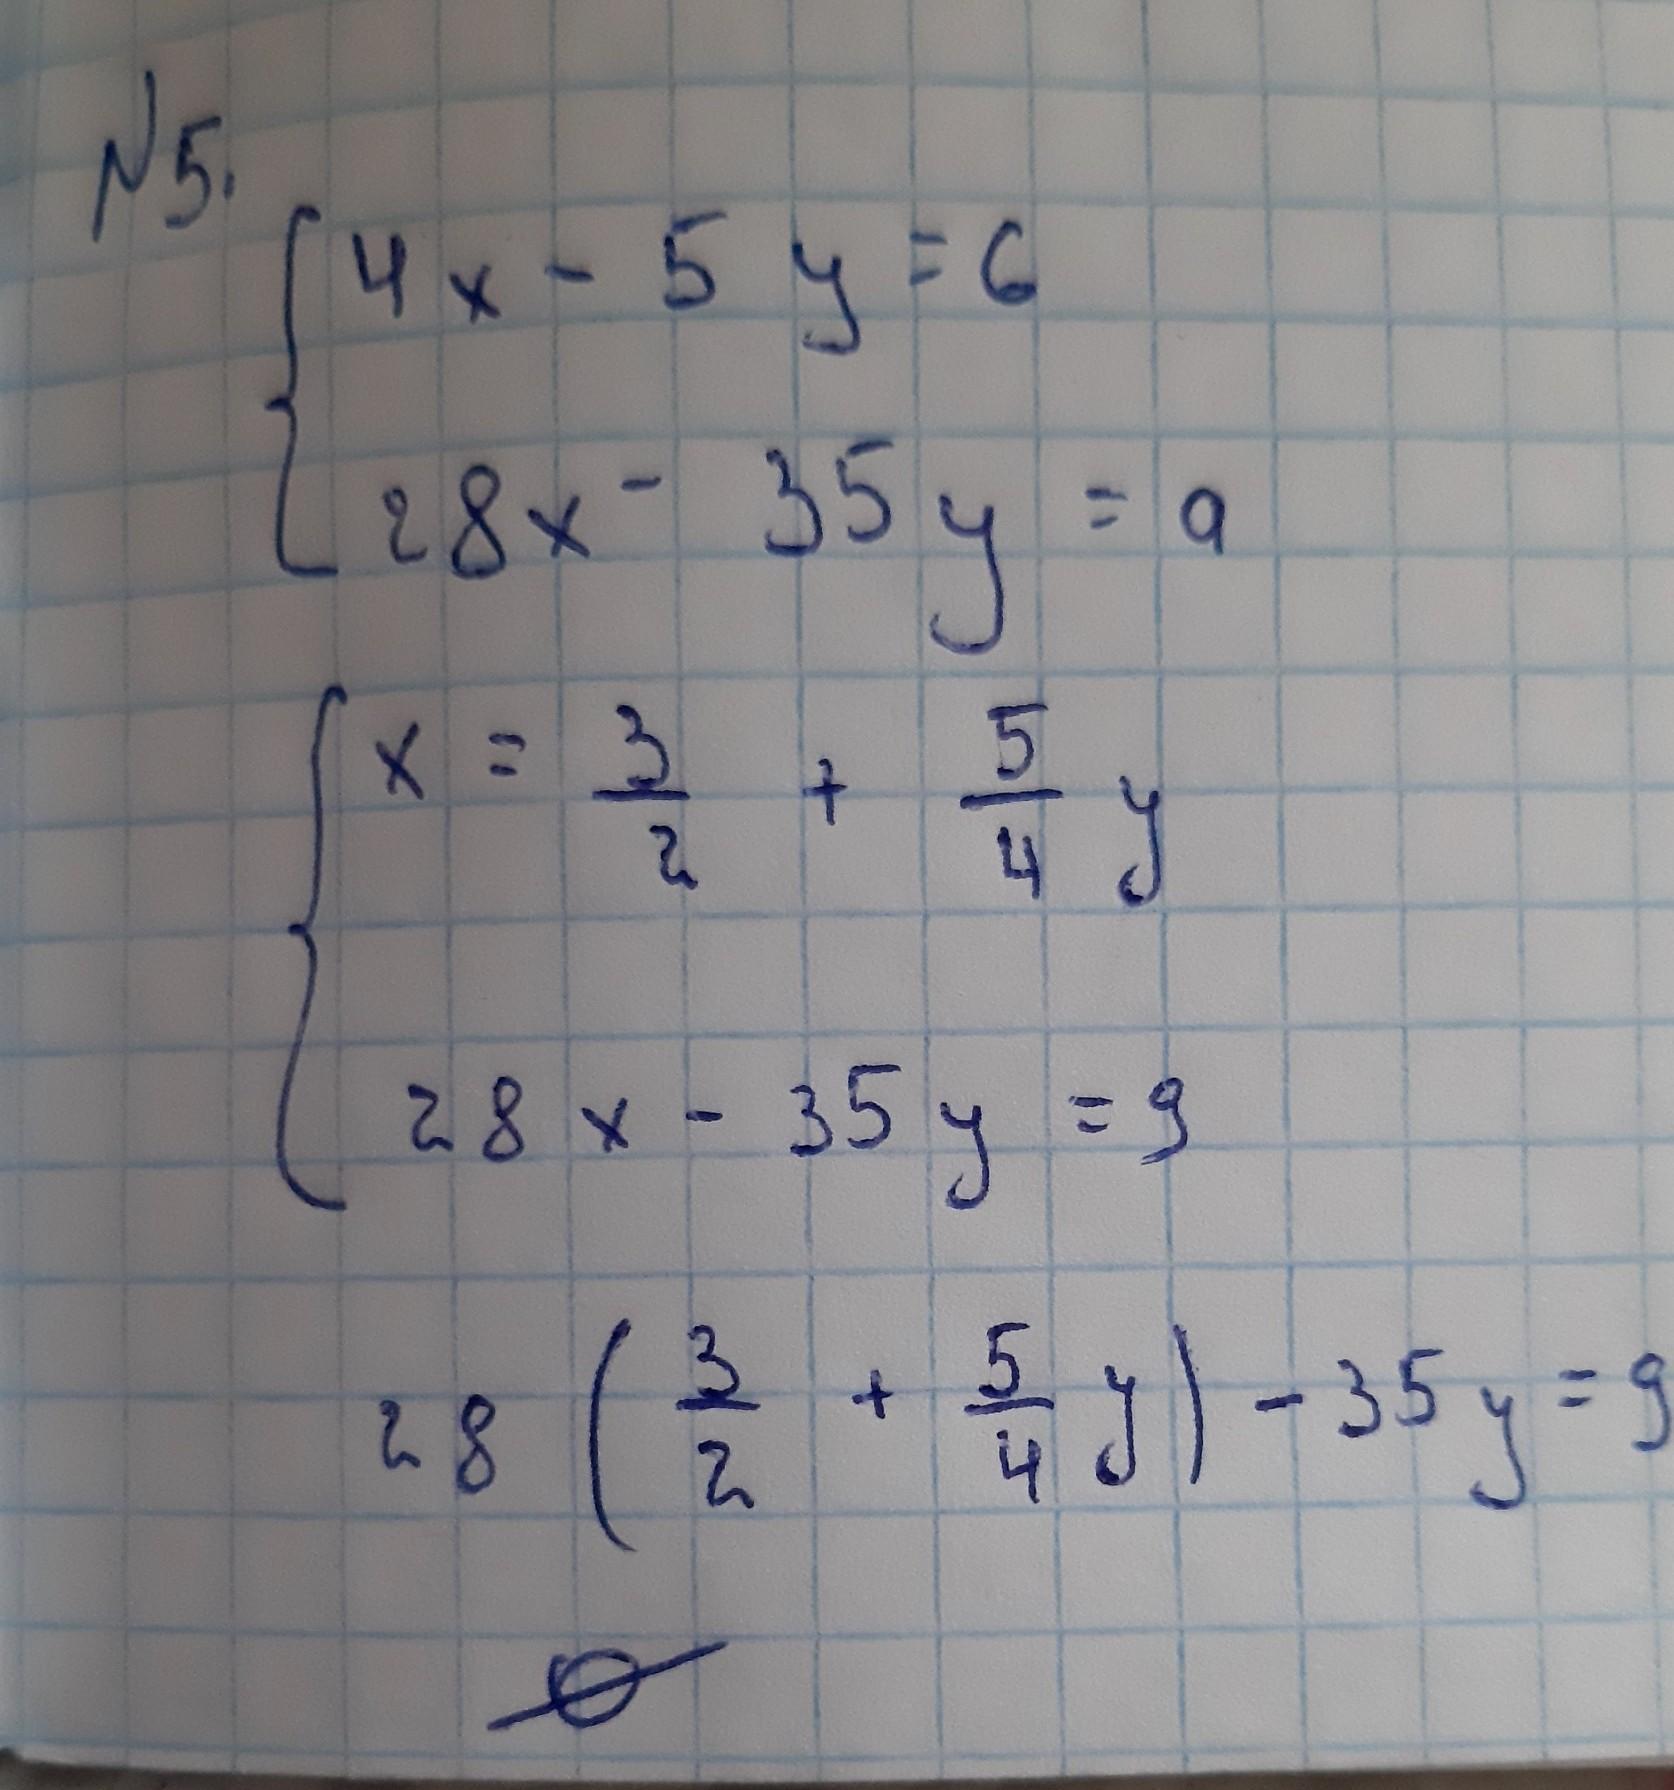 N5.
4x - 5y = 6
28x - 35y = 9
x = 3/2 + 5/4 y
28x - 35y = 9
28 (3/2 + 5/4 y) - 35y = 9
∅